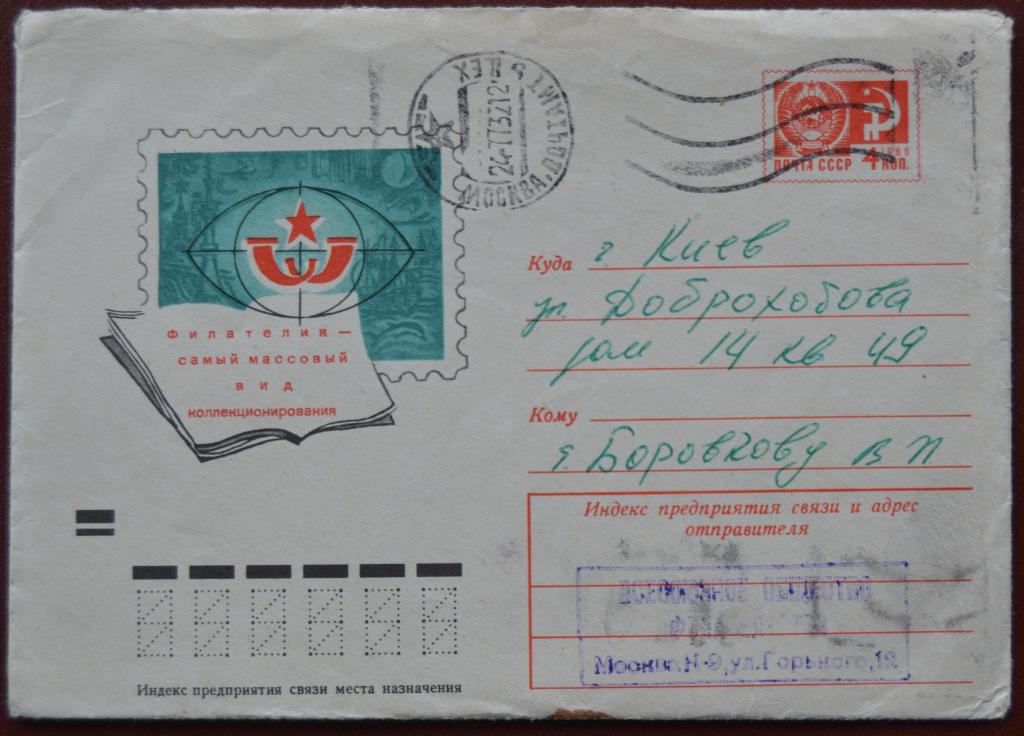 МОСКВА, ПОЧТАМТ
24-7 73 21
ПОЧТА СССР 4 КОП.
1966
Филателия —
самый массовый
вид
коллекционирования
Куда г. Киев
ул. Доброхотова
дом 14 кв 49
Кому
т. Боровкову В П
Индекс предприятия связи и адрес
отправителя
ВСЕСОЮЗНОЕ ОБЩЕСТВО
Москва К-9, ул. Горького, 12
Индекс предприятия связи места назначения